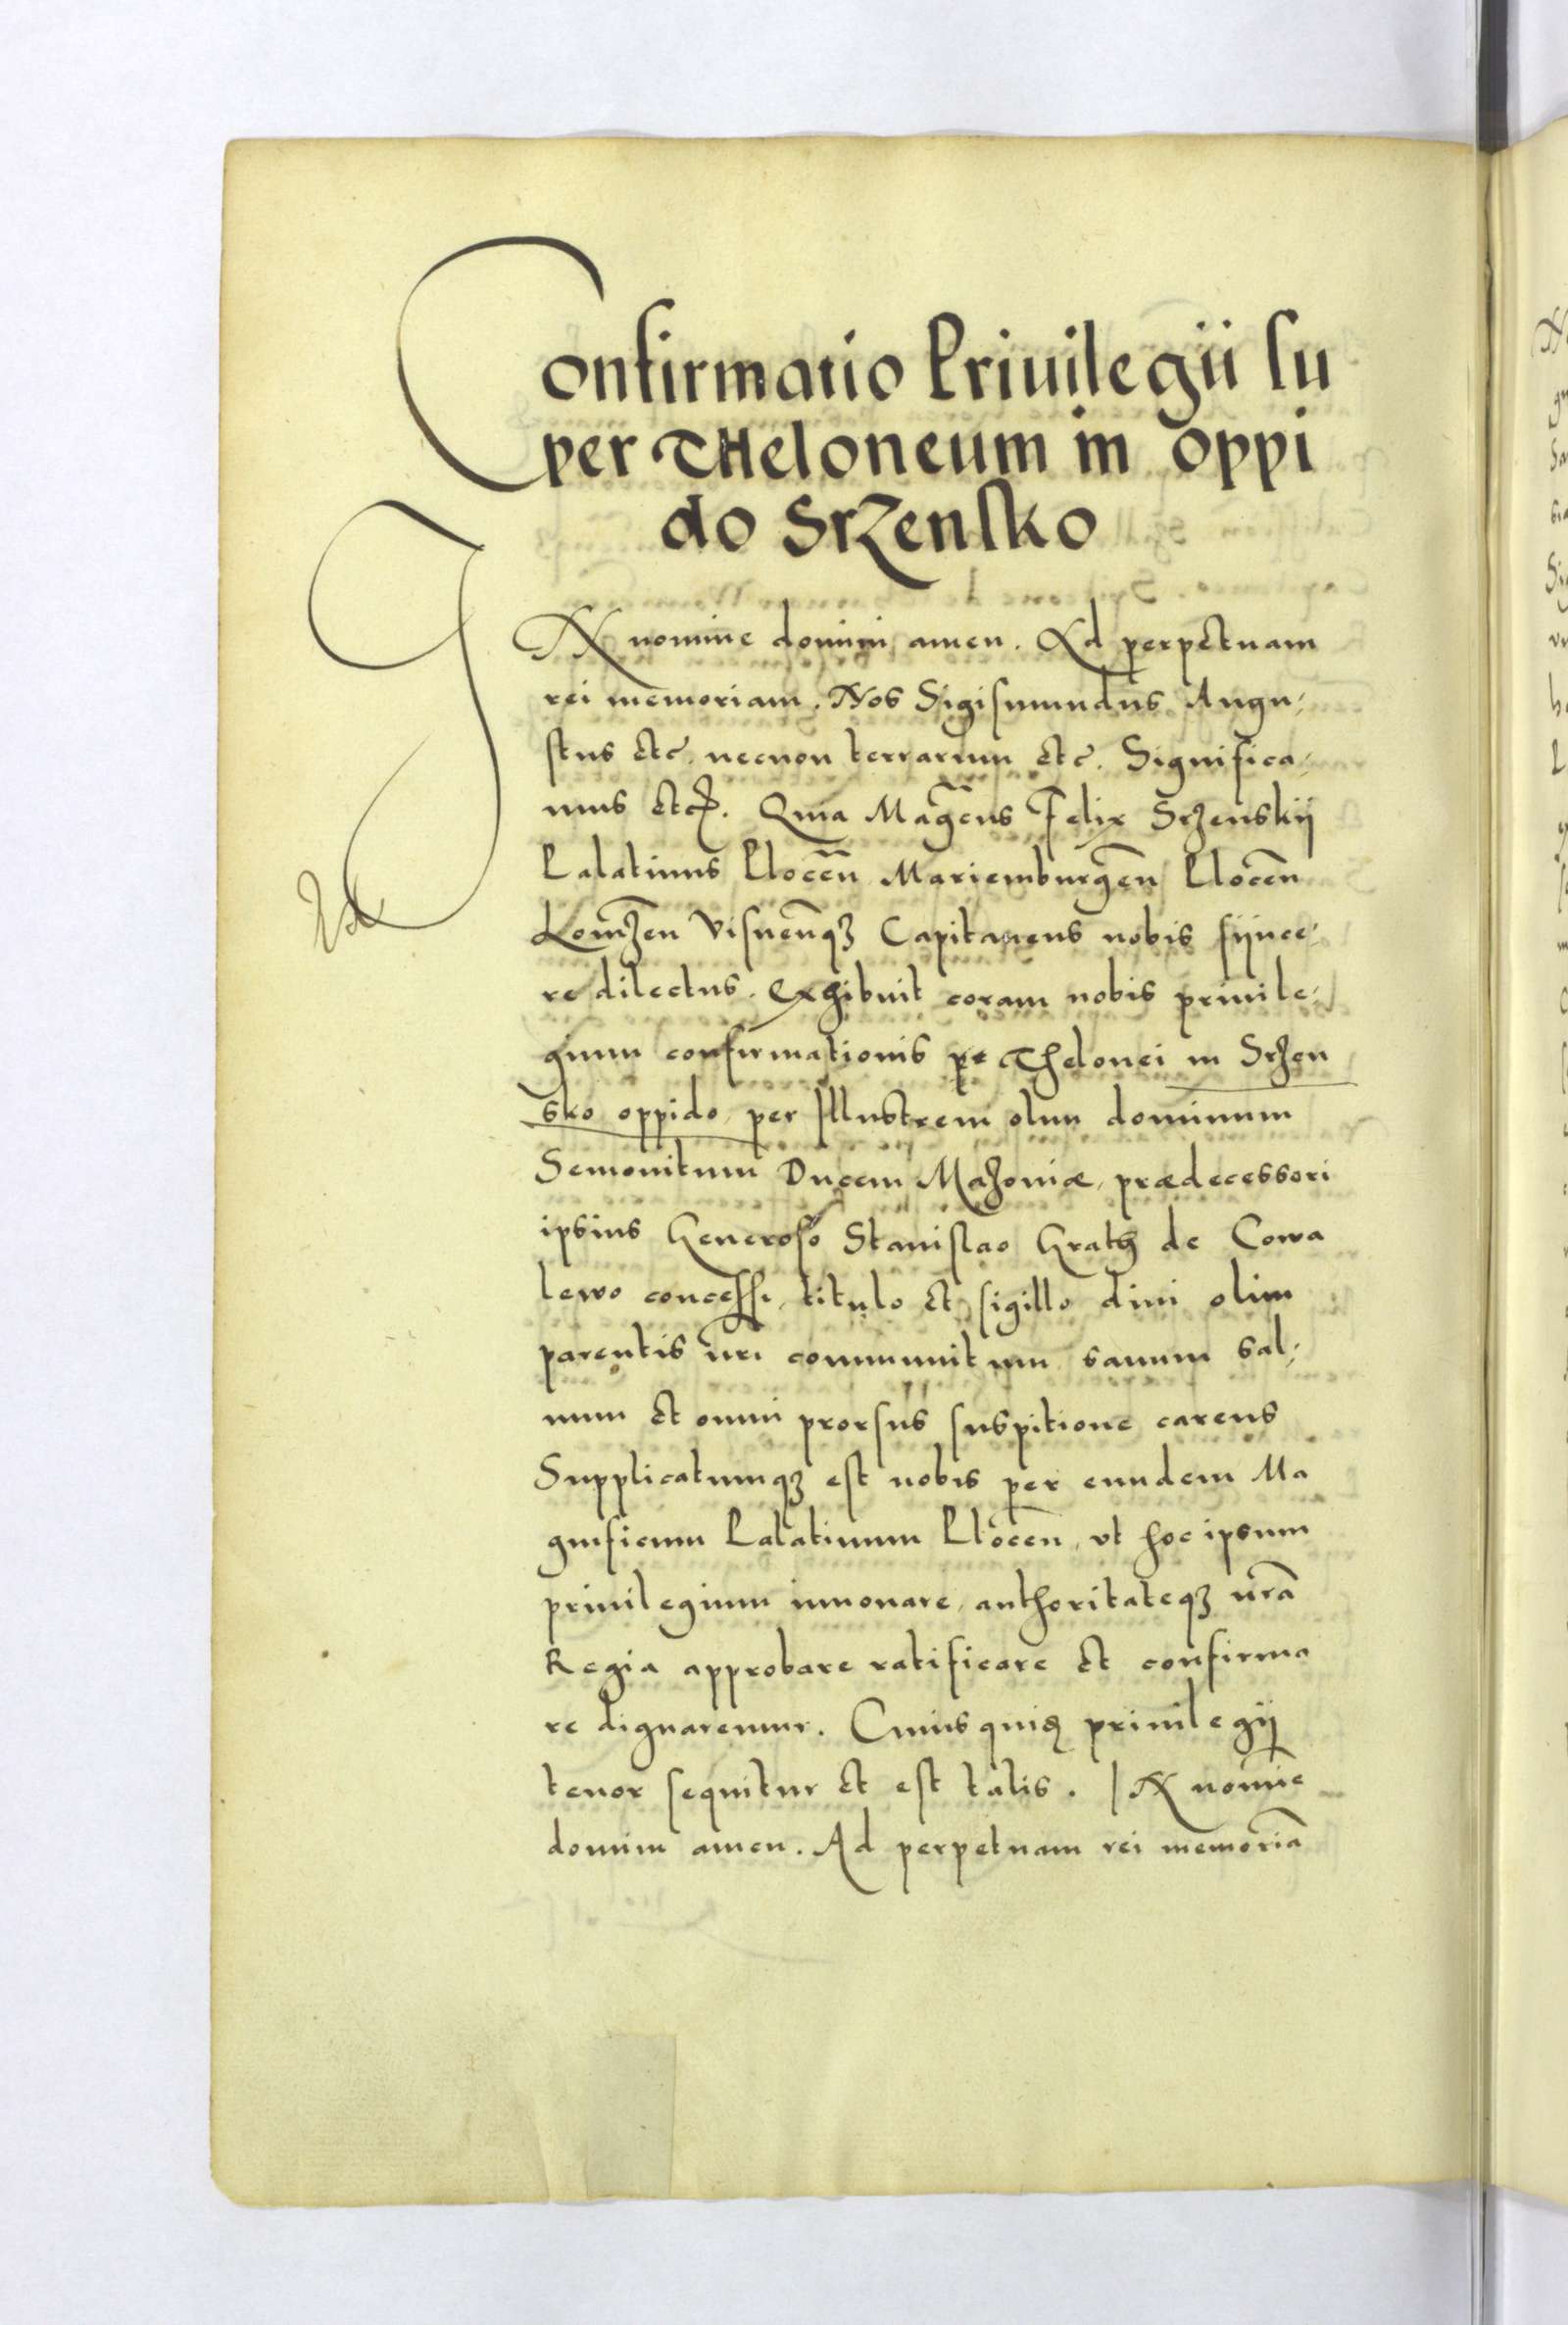 Confirmatio Priuilegii su
per Theloneum in oppi
do Srzensko
IN nomine domini amen. Ad perpetuam
rei memoriam. Nos Sigismundus Augu⸗
stus etc. necnon terrarum etc. Significa⸗
mus etc. Quia Magcus Felix Srzenskij
Palatinus Plocen̄ Mariemburgen̄ Plocen̄
Lomzen̄ Visnen̄qꝫ Capitaneus nobis sijnce⸗
re dilectus. Exhibuit coram nobis priuile⸗
gium confirmationis Thelonei in Srzen
sko oppido, per Illustrem olim dominum
Semouitum Ducem Mazouiæ, prædecessori
ipsius Generoso Stanislao Grath de Cowa
lewo concessi, titulo et sigillo diui olim
parentis nr̄i communitum sanum sal⸗
uum et omni prorsus suspitione carens
Supplicatumqꝫ est nobis per eundem Ma
gnificum Palatinum Plocen̄, vt hoc ipsum
priuilegium innouare, authoritateqꝫ nr̄a
Regia approbare ratificare et confirma
re dignaremur. Cuius quidem priuilegij
tenor sequitur et est talis. IN nomīe
domini amen. Ad perpetuam rei memoriā